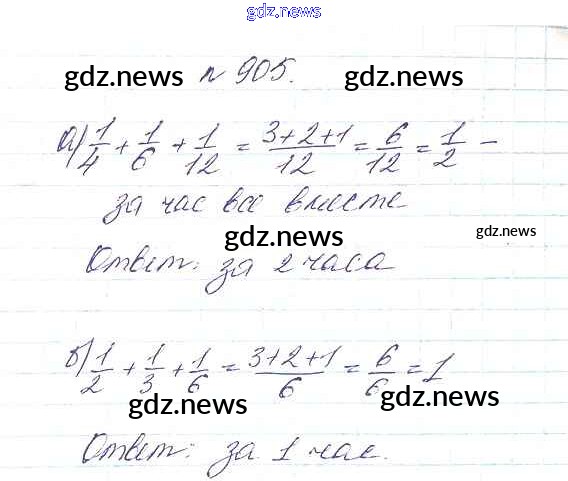 gdz.news
gdz.news № 905. gdz.news
а) 1/4 + 1/6 + 1/12 = (3+2+1)/12 = 6/12 = 1/2 –
за час все вместе
gdz.news gdz.news
Ответ: за 2 часа
б) 1/2 + 1/3 + 1/6 = (3+2+1)/6 = 6/6 = 1
gdz.news gdz.news
Ответ: за 1 час.